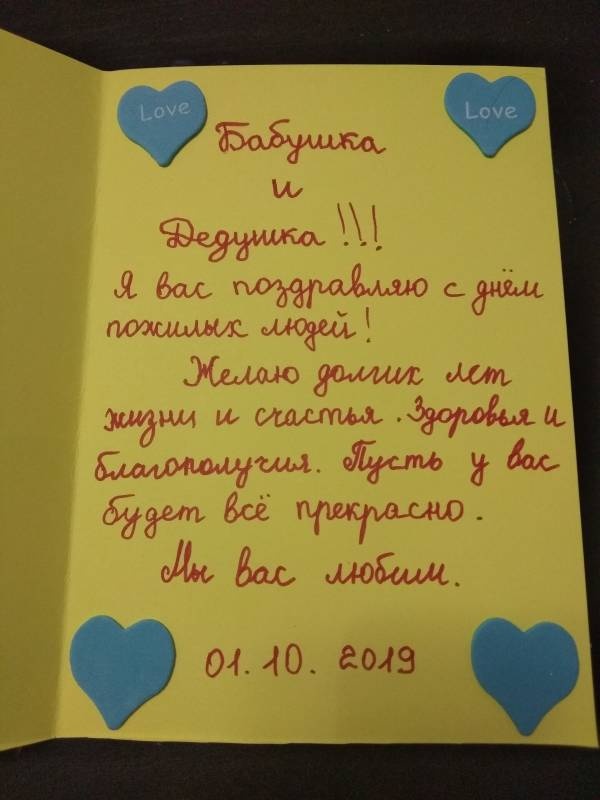 Love
Love
Бабушка
и
Дедушка!!!
Я вас поздравляю с днём
пожилых людей!
Желаю долгих лет
жизни и счастья. Здоровья и
благополучия. Пусть у вас
будет всё прекрасно.
Мы вас любим.
01.10.2019